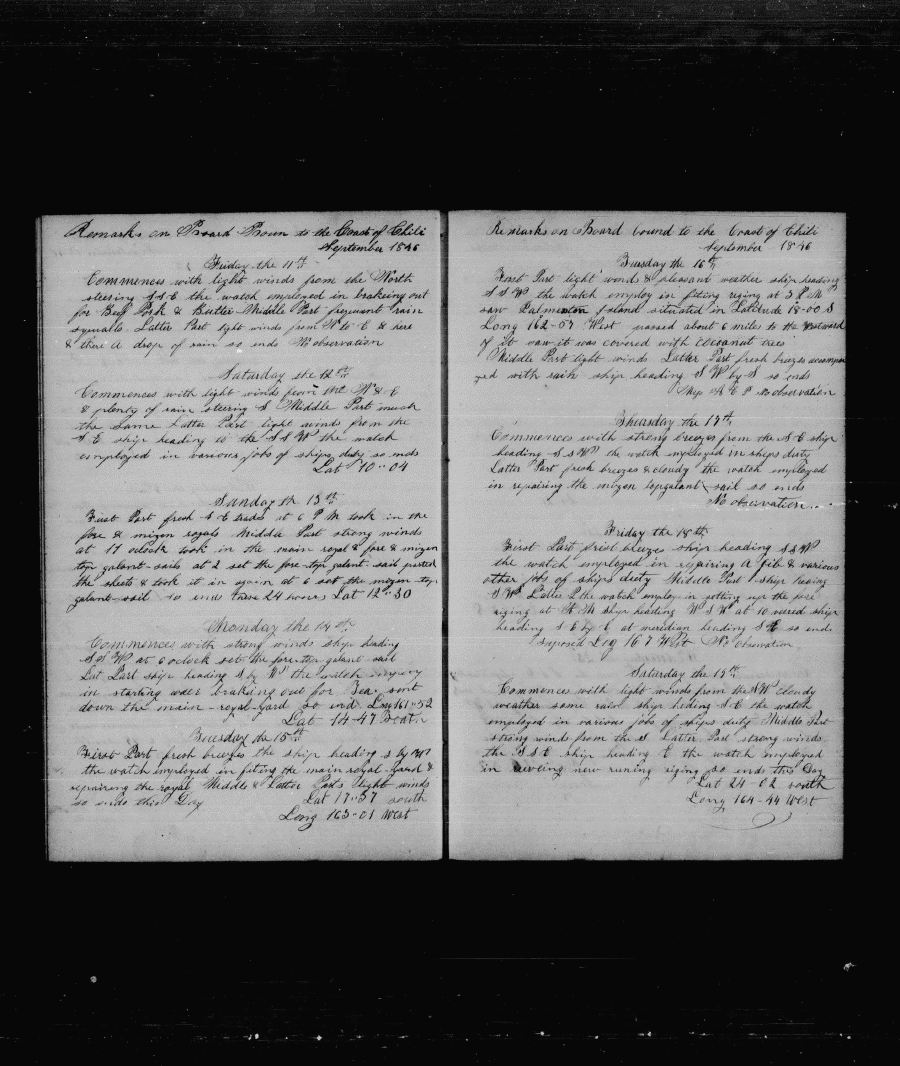 Remarks on Board Boun to the Coast of Chili
September 1846
Friday the 11th
Commences with light winds from the North
steering S S E the watch employed in brakeing out
for Beef Pork & Butter Middle Part frequent rain
squalls Latter Part light winds from N to E & here
& there a drop of rain so ends No observation
Saturday the 12th
Commences with light winds from the N & E
& plenty of rain steering S Middle Part much
the same Latter Part light winds from the
S E ship heading to the S S W the watch
employed in various jobs of ships duty so ends
Lat 10-04
Sunday th 13th
First Part fresh S E trades at 6 P M took in the
fore & mizen royals Middle Part strong winds
at 11 oclock took in the main royal & fore & mizen
top galant-sails at 2 set the fore-top galant-sail parted
the sheets & took it in again at 6 set the mizen-top
galant-sail so ends these 24 hours Lat 12-30
Monday the 14th
Commences with strong winds ship heading
S S W at 6 oclock set the fore-top galant sail
Lat Part ship heading S by W the watch employ
in starting braking out for sent
down the main-royal-yard so end Long 161-52
Lat 14-47 South
Tuesday the 15th
First Part fresh breezes the ship heading S by W
the watch employed in fiting the main royal-yard &
repairing the royal Middle & Latter Parts light winds
so ends this Day Lat 17-37 south
Long 163-01 West
Remarks on Board bound to the Coast of Chili
September 1846
Tuesday the 16th
First Part light wind & pleasant weather ship heading
S S W the watch employ in fiting riging at 3 P M
saw Palmeston Island situated in Latitude 18-00 S
Long 162-07 West passed about 6 miles to the westward
of it saw it was covered with cocoanut trees
Middle Part light winds Latter Part fresh breezes acompan
yed with rain ship heading S W by S so ends
No observation
Thursday the 17th
Commences with strong breezes from the S E ship
heading S S W the watch employed in ships duty
Latter Part fresh breezes & cloudy the watch employed
in repairing the mizen topgalant sail so ends
No observation
Friday the 18th
First Part breezes ship heading S S W
the watch employed in repairing a jib & various
other jobs of ships duty Middle Part ship heading
S W Latter P the watch employ in setting up the fore
riging at A M ship heading W S W at 10 veered ship
heading S E by E at meridian heading S E so ends
suposed Log 167 West No observation
Saturday the 19th
Commences with light winds from the S W cloudy
weather some rain ship heding S E the watch
employed in various jobs of ships duty Middle Part
strong winds from the S Latter Part strong winds
the S S E ship heading E the watch employed
in reeveing new runing riging so ends this Day
Lat 24-02 south
Long 164-44 West